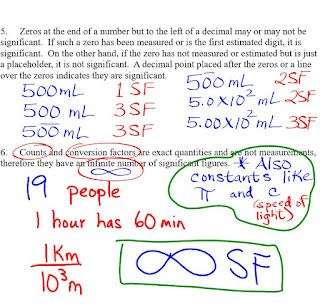 5. Zeros at the end of a number but to the left of a decimal may or may not be
significant. If such a zero has been measured or is the first estimated digit, it is
significant. On the other hand, if the zero has not measured or estimated but is just
a placeholder, it is not significant. A decimal point placed after the zeros or a line
over the zeros indicates they are significant.
500mL 1 SF
500. mL 3SF
500̅ mL 3SF
50̅0 mL 2SF
5.0X10² mL 2SF
5.00X10² mL 3SF
6. Counts and conversion factors are exact quantities and are not measurements,
therefore they have an infinite number of significant figures.
∞
* Also
constants like
π and c
(speed of
light)
19 people
1 hour has 60 min
1Km
10³m
∞ SF